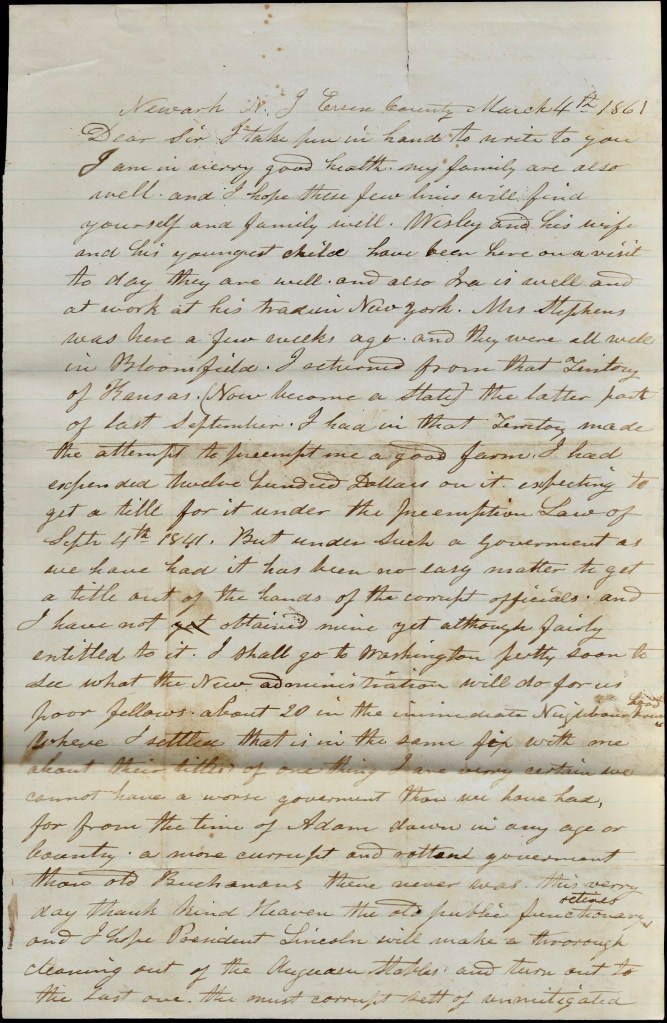 Newark N. J Essex County March 4th 1861
Dear Sir I take pen in hand to write to you
I am in verry good health. my family are also
well. and I hope these few lines will find
yourself and family well. Wesley and his wife
and his youngest child have been here on a visit
to day they are well. and also Ira is well and
at work at his trade in New york. Mrs Stephens
was here a few weeks ago. and they were all well
in Bloomfield. I returned from that Teritory
of Kansas. (Now become a State) the latter part
of last September. I had in that Territory made
the attempt to preempt me a good farm. I had
expended twelve hundred Dollars on it expecting to
get a title for it under the preemption Law of
Sept 4th 1841. But under such a goverment as
we have had it has been no easy matter to get
a title out of the hands of the corupt officials. and
I have not yet obtained mine yet although fairly
entitled to it. I shall go to Washington pretty soon to
see what the New administration will do for us
poor fellows. about 20 in the immediate Neighbourhood
where I settled that is in the same fix with me
about their titles. of one thing I are verry certain we
cannot have a worse goverment than we have had,
for from the time of Adam down in any age or
Country. a more currupt and rotten goverment
than old Buchanans there never was. this verry
day thank kind Heaven the old public functionary retires
and I hope President Lincoln will make a thorough
cleaning out of the Augean stables. and turn out to
the last one. the most corrupt sett of unmitigated